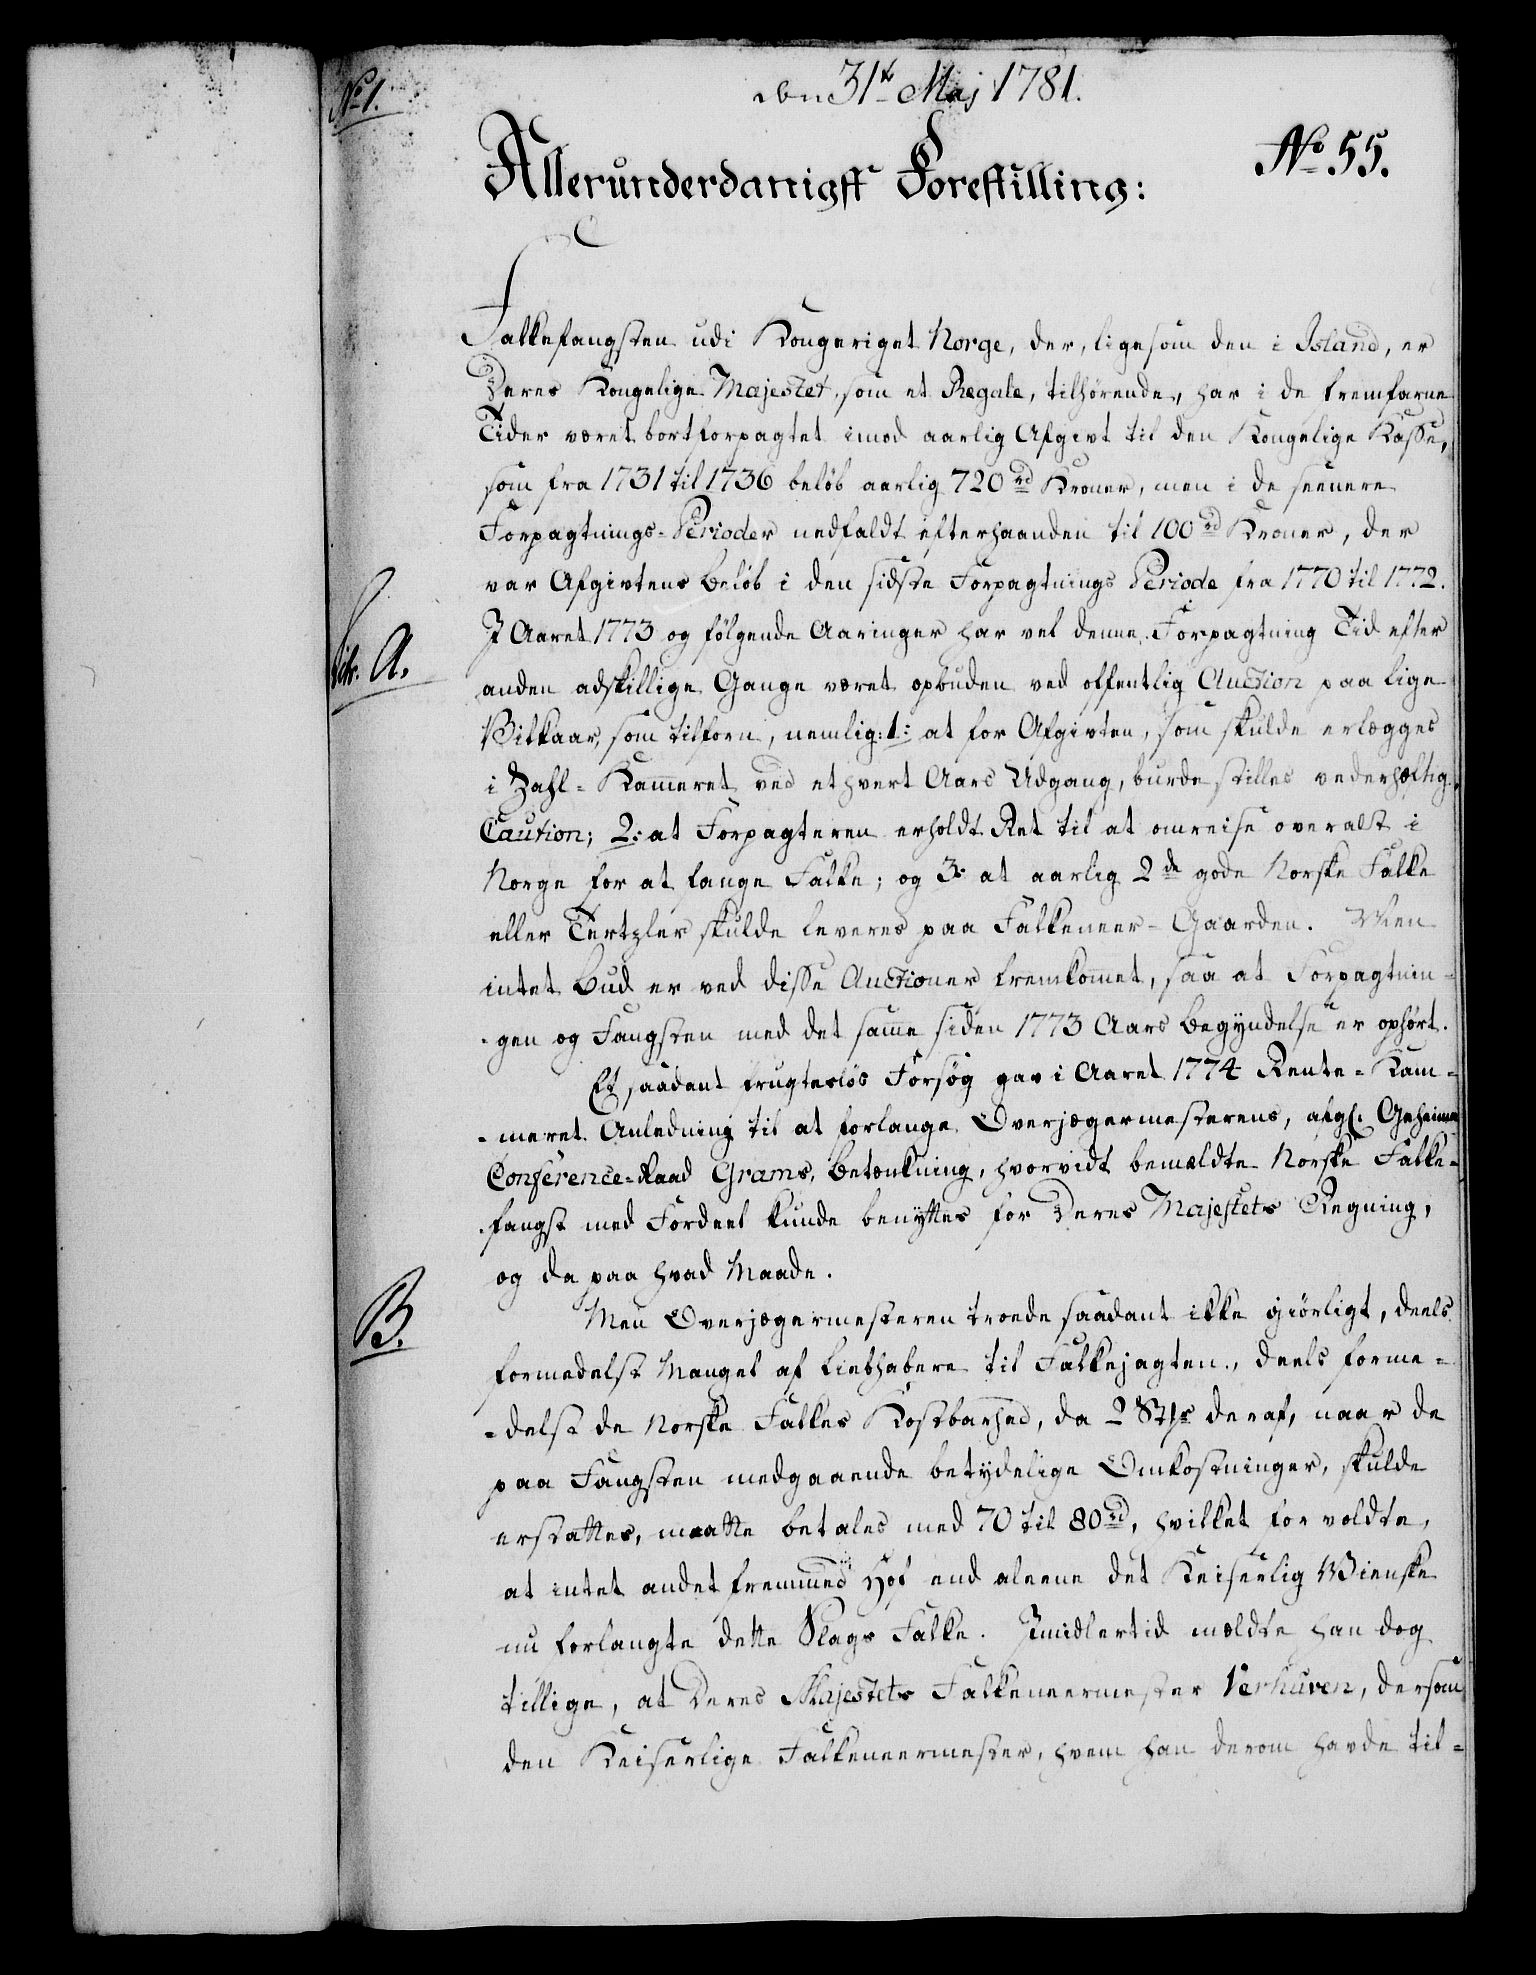 No 1.
den 31te Maj 1781.
No 55.
Allerunderdanigst Forestilling:
Falkefangsten udi Kongeriget Norge, der, ligesom den i Island, er
Deres Kongelige Majestet, som et Regale, tilhørende, har i de fremfarne
Tider været bortforpagtet imod aarlig Afgivt til den Kongelige Kasse,
som fra 1731 til 1736 beløb aarlig 720 rd Kroner, men i de seenere
Forpagtnings-Perioder nedfaldt efterhaanden til 100 rd Kroner, der
var Afgivtens Beløb i den sidste Forpagtnings Periode fra 1770 til 1772.
I Aaret 1773 og følgende Aaringer har vel denne Forpagtning Tid efter
Litr. A.
anden adskillige Gange været opbuden ved offentlig Auction paa lige
Vilkaar, som tilforn, nemlig: 1: at for Afgivten, som skulde erlægges
i Zahl-Kammeret ved ethvert Aars Udgang, burde stilles vederhæftig
Caution; 2: at Forpagteren erholdt Ret til at omreise overalt i
Norge for at fange Falke; og 3: at aarlig 2de gode Norske Falke
eller Tertzler skulde leveres paa Falkeneer-Gaarden. Men
intet Bud er ved disse Auctioner fremkommet, saa at Forpagtnin-
-gen og Fangsten med det samme siden 1773 Aars Begyndelse er ophørt.
Et saadant frugtesløs Forsøg gav i Aaret 1774 Rente-Kam-
-meret Anledning til at forlange Overjægermesterens, afg: Geheime
Conference-Raad Grams, Betænkning, hvorvidt bemældte Norske Falke-
-fangst med Fordeel kunde benyttes for Deres Majestets Regning,
og da paa hvad Maade.
B.
Men Overjægermesteren troede saadant ikke giørligt, deels
formedelst Mangel af Liebhabere til Falkejagten, deels forme-
-delst de Norske Falkes Kostbarhed, da 2 Stkr deraf, naar de
paa Fangsten medgaaende betydelige Omkostninger, skulde
erstattes, maatte betales med 70 til 80 rd, hvilket forvoldte,
at intet andet fremmed Hof end aleene det Keiserlig Wienske
nu forlangte dette Slags Falke. Imidlertid mældte han dog
tillige, at Deres Majestets Falkeneermester Verhuven, dersom
den Keiserlige Falkeneermester, hvem han derom havde til-